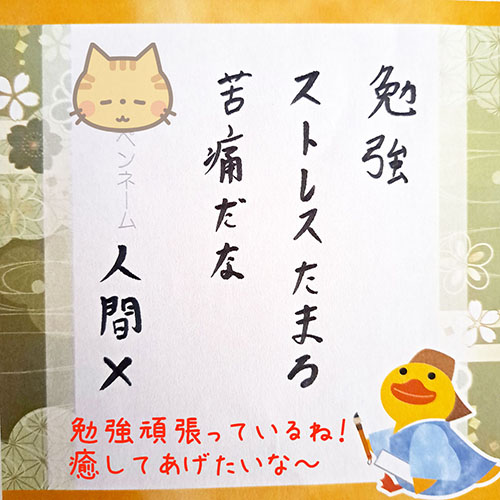 勉強
ストレスたまる
苦痛だな
ペンネーム
人間X
勉強頑張っているね！
癒してあげたいな～